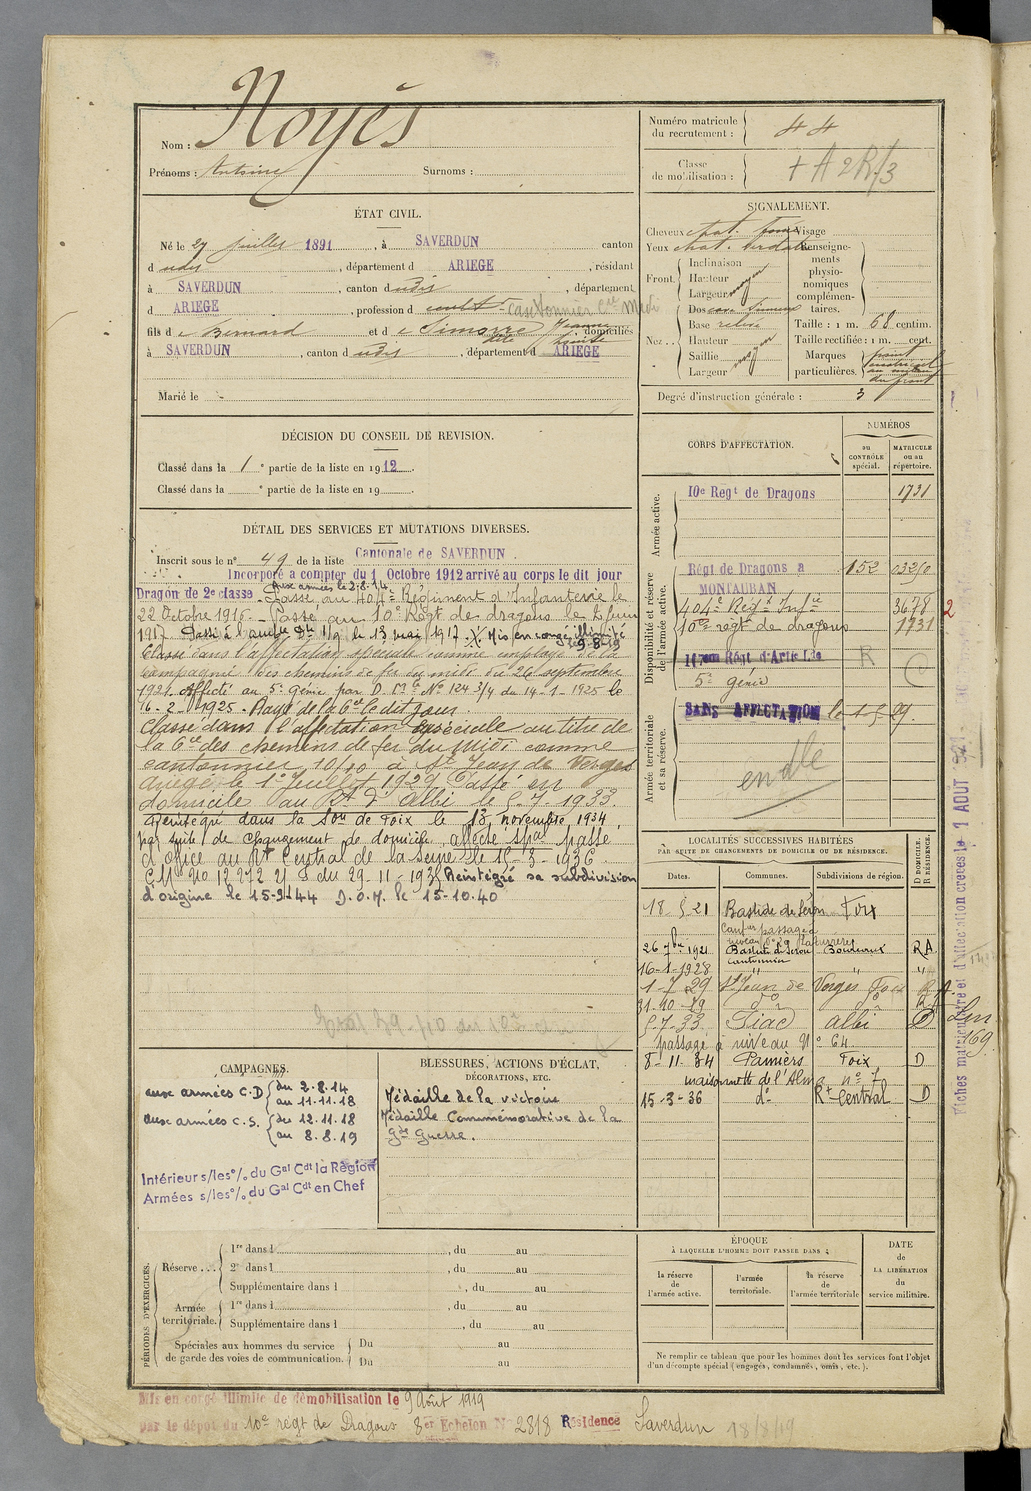 Nom : Noyès
Prénoms : Antoine Surnoms :
Numéro matricule du recrutement : 44
Classe de mobilisation :
ÉTAT CIVIL.
Né le 27 juillet 1891, à SAVERDUN canton
d udis, département d ARIEGE, résidant
à SAVERDUN, canton d udis, département
d ARIEGE, profession d cult - Cantonnier Cie Midi
fils d e Bernard et d e Simorre Jeanne domiciliés
à SAVERDUN, canton d udis, département d ARIEGE
Marié le
SIGNALEMENT.
Cheveux chat. foncé Visage
Yeux chat. verdâtre Renseignements physionomiques complémentaires.
Front. Inclinaison
Hauteur
Largeur moyen
Nez... Dos
Base relevé
Hauteur
Saillie moyen
Largeur
Taille : 1 m. 68 centim.
Taille rectifiée : 1 m. cent.
Marques particulières.
Degré d'instruction générale : 3
DÉCISION DU CONSEIL DE REVISION.
Classé dans la 1e partie de la liste en 1912.
Classé dans la e partie de la liste en 19
DÉTAIL DES SERVICES ET MUTATIONS DIVERSES.
Inscrit sous le n° 49 de la liste Cantonale de SAVERDUN.
Incorporé a compter du 1 Octobre 1912 arrivé au corps le dit jour
Aux armées le 2.8.14
Dragon de 2e classe - Passé au 404e Régiment d'Infanterie le
22 Octobre 1916 - Passé au 10e Régt de dragons le 2 juin
1917 le 13 mai 1917. X Mis en congé illimité
le 9-8-19
Classé dans l'affectation spéciale comme employé de la
compagnie des chemins de fer du midi du 26 septembre
1921. Affecté au 5e génie par D. Mlle No 124 3/4 du 14-1-1925 le
16-2-1925 - Rayé de la 6e le dit jour.
Classé dans l'affectation spéciale au titre de
la 6e des chemins de fer du Midi comme
cantonnier à St Jean de Verges
Ariège le 1er Juillet 1929 Passé en
domicile au Rt d'Albi le 5.7.1933
Réintégré dans la Son de Foix le 13 novembre 1934,
par suite de changement de domicile, affecté spal passé
d'office au Rt Central de la Seine le 15-3-1936
CM No 12272 du 29-11-193 Réintégré sa subdivision
d'origine le 15-2-44 D.O.M. le 15-10-40
CORPS D'AFFECTATION.
NUMÉROS
au CONTRÔLE spécial.
MATRICULE ou au répertoire.
Armée active.
10e Regt de Dragons 1731
Disponibilité et réserve de l'armée active.
Régt de Dragons a MONTAUBAN 152 03250
404e Régt Infie 3678 2
10e régt de dragons 1731
R
5e génie
Armée territoriale et sa réserve.
SANS AFFECTATION le 1-5-29
LOCALITÉS SUCCESSIVES HABITÉES
PAR SUITE DE CHANGEMENTS DE DOMICILE OU DE RÉSIDENCE.
Dates. Communes. Subdivisions de région. D DOMICILE. R RÉSIDENCE.
18 5 21 Bastide de Sérou Foix
26 7bre 1921 Bastide de Sérou Bordeaux RA
cantonnier
16-1-1928 " " "
1-7 29 St Jean de Verges Foix
31-10-29 do do
5.7.33 Albi D
passage à nive au No 64
8-11.34 Pamiers Foix D
maisonnette de l'Alma no 7
15-3-36 do Rt Central D
CAMPAGNES.
aux armées C.D du 2.8.14
au 11.11.18
aux armées C.S. du 12.11.18
au 8.8.19
Intérieur s/les o/o du Gal Cdt la Région
Armées s/les o/o du Gal Cdt en Chef
BLESSURES, ACTIONS D'ÉCLAT,
DÉCORATIONS, ETC.
Médaille de la victoire
Médaille Commémorative de la
Gde Guerre.
PÉRIODES D'EXERCICES.
Réserve... 1re dans l , du au
2e dans l , du au
Supplémentaire dans l , du au
Armée territoriale. 1re dans l , du au
Supplémentaire dans l , du au
Spéciales aux hommes du service de garde des voies de communication. Du au
Du au
ÉPOQUE
À LAQUELLE L'HOMME DOIT PASSER DANS :
la réserve de l'armée active.
l'armée territoriale.
la réserve de l'armée territoriale
DATE de LA LIBÉRATION du service militaire.
Ne remplir ce tableau que pour les hommes dont les services font l'objet
d'un décompte spécial (engagés, condamnés, omis, etc.).
Mis en congé illimité de démobilisation le 9 Août 1919
par le dépôt du 10e régt de Dragons 8er Echelon No 2818 Résidence Saverdun 18/8/19